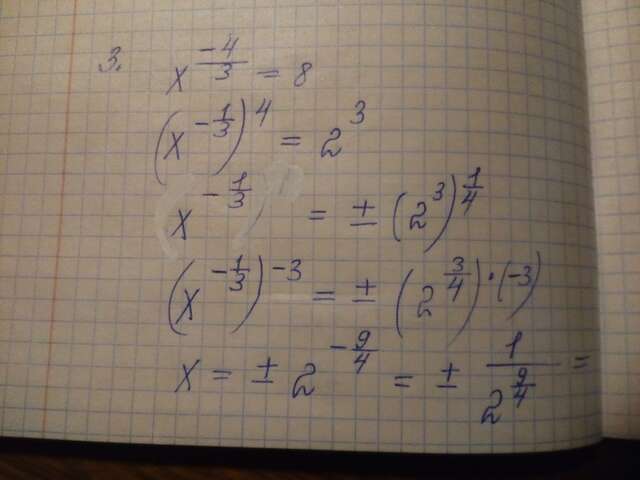 3. x^(-4/3) = 8
(x^(-1/3))^4 = 2^3
x^(-1/3) = ± (2^3)^(1/4)
(x^(-1/3))^(-3) = ± (2^(3/4))^(·(-3))
x = ± 2^(-9/4) = ± 1/2^(9/4) =